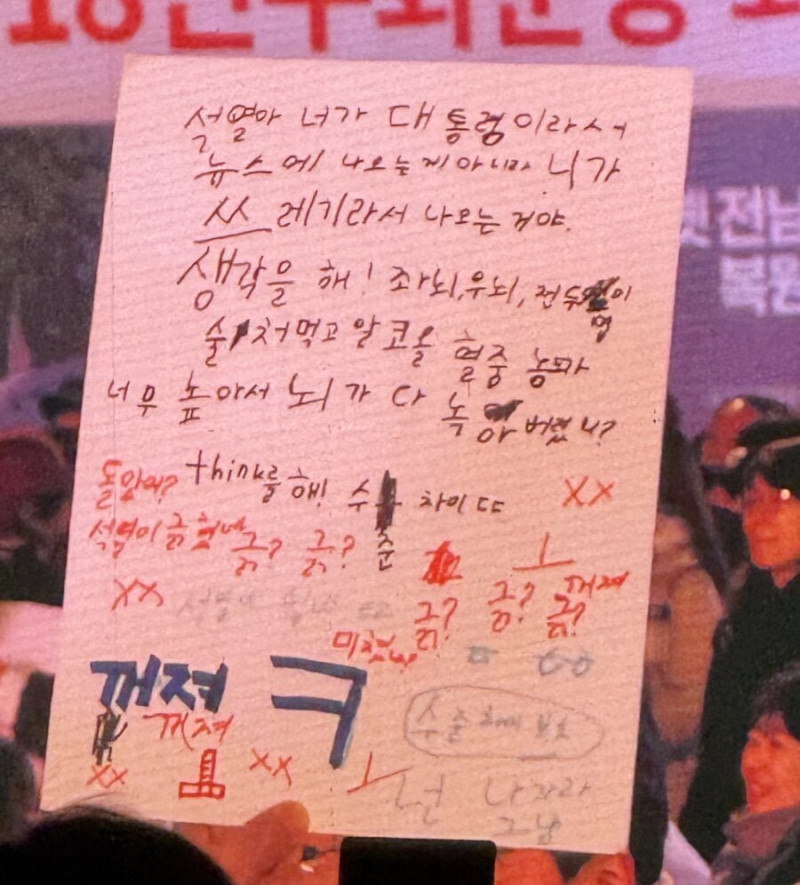 석열아 너가 대통령이라서
뉴스에 나오는게 아니라 니가
쓰레기라서 나오는 거야.
생각을 해! 좌뇌, 우뇌, 전두엽이
술 처먹고 알코올 혈중 농도가
너무 높아서 뇌가 다 녹아버렸니?
돌았어? think를 해! 수준 차이 ㄸ
XX
석열이
긁? 긁?
XX
긁? 긁? 긁?
꺼져
미쳤냐
꺼져 ㅋ
꺼져
XX ㅗ XX ㅗ
넌 나가라
그냥
전남
복원